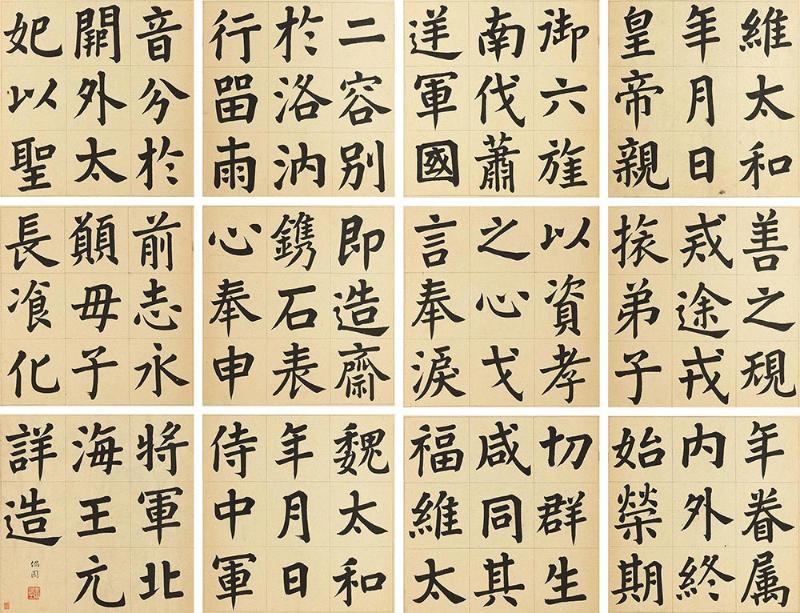 維太和
年月日
皇帝親
御六旌
南伐蕭
逆軍國
二容別
於洛汭
行留雨
音兮於
關外太
妃以聖
善之規
戒途戎
旅弟子
以資孝
之心戈
言奉淚
即造齋
鐫石表
心奉申
前志永
願母子
長飡化
年眷属
內外終
始榮期
切群生
咸同其
福維太
魏太和
年月日
侍中軍
將軍北
海王元
詳造